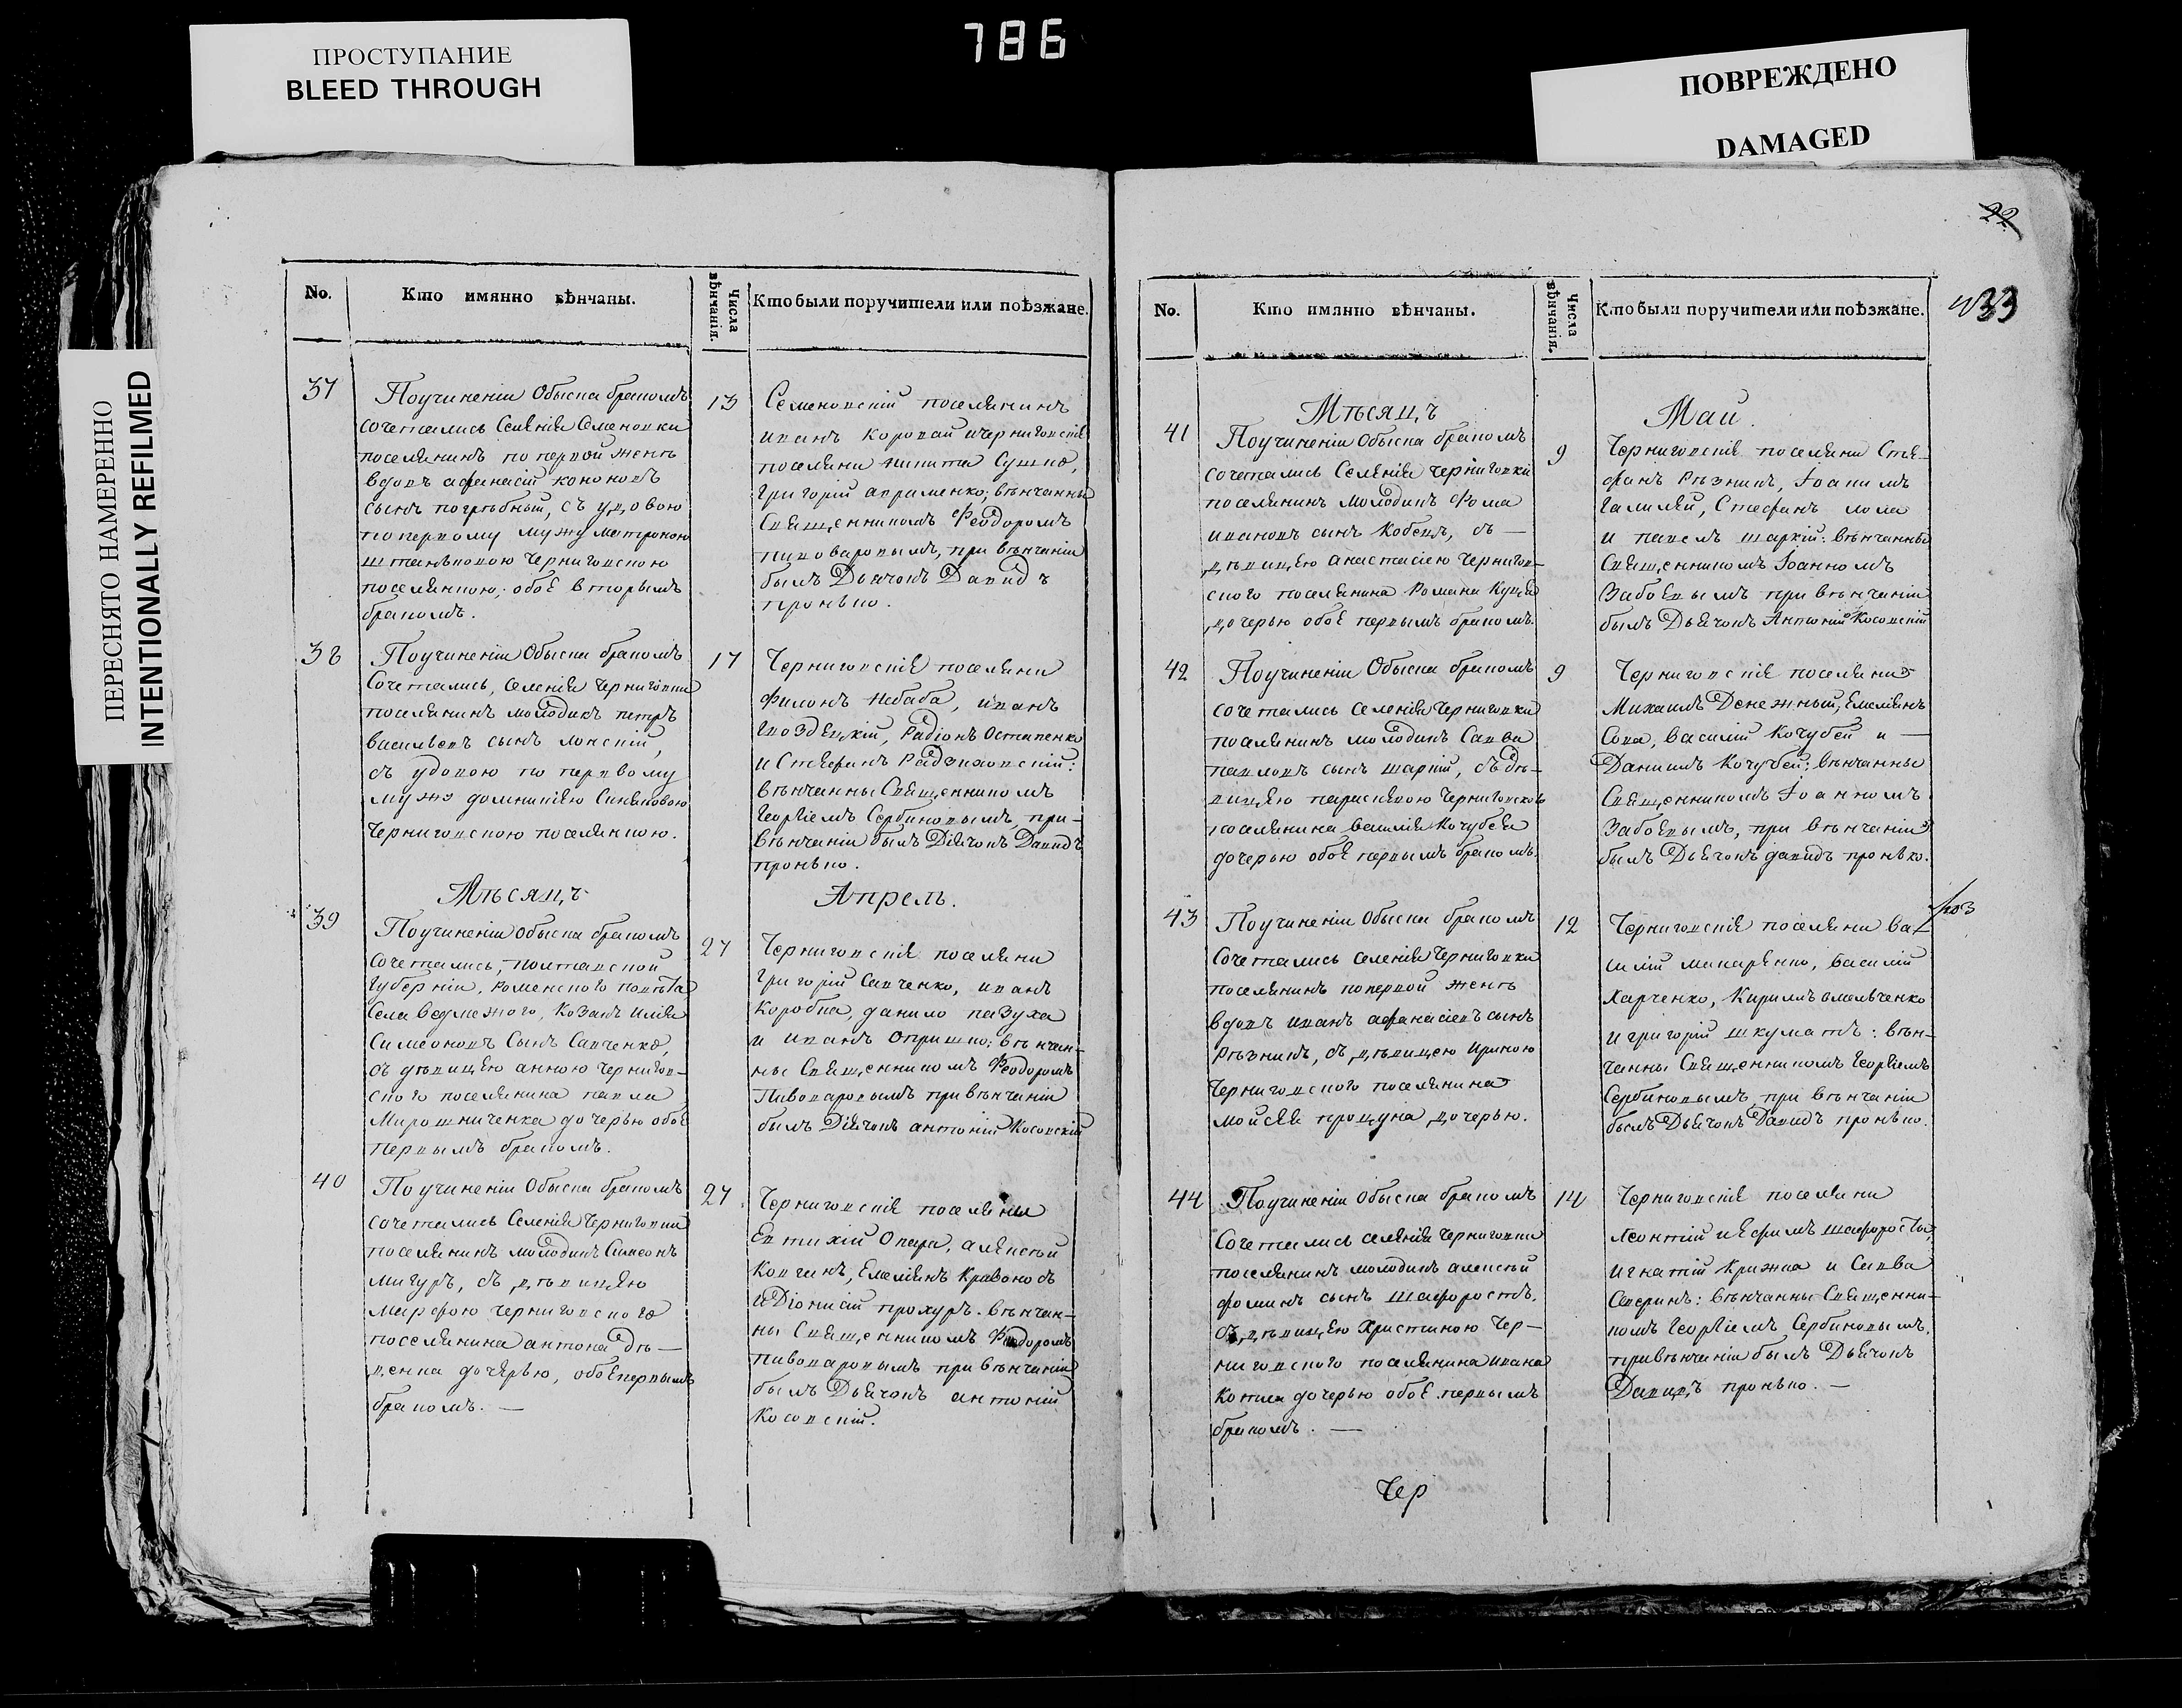 786
ПРОСТУПАНИЕ
BLEED THROUGH
ПОВРЕЖДЕНО
DAMAGED
ПЕРЕСНЯТО НАМЕРЕННО
INTENTIONALLY REFILMED
No.
Кто имянно вѣнчаны.
Числа вѣнчанія.
Кто были поручители или поѣзжане.
37
Поучиненіи Обыска бракомъ
сочетались Селенія Семеновки
поселянинъ по первой женѣ
вдовъ афанасій кононовъ
сынъ погрѣбный, съ удовою
по первому мужу матроною
поселянкою; обоє вторымъ
бракомъ.
13
Семеновскій поселянинъ
иванъ коровай ичерниговскіе
поселяни никита Сушко,
григорій авраменко; вѣнчанны
Священникомъ Феодоромъ
пивоваровымъ, при вѣнчаніи
былъ Дьячокъ Давидъ
пронько.
38
Поучиненіи Обыска бракомъ
Сочетались, селенія Черниговки
поселянинъ молодикъ петръ
васильевъ сынъ лонскій,
съ удовою по первому
мужу домникією Синяковою
Черниговскою поселянкою.
17
Черниговскіе поселяни
Филонъ Небаба, иванъ
гвоздецкій, Радіонъ Остапенко
и Стефанъ Радзиховскій:
вѣнчанны Священникомъ
Георгіемъ Сербиновымъ, при-
вѣнчаніи былъ Діячокъ Давидъ
пронько.
Мѣсяцъ
Апрель.
39
Поучиненіи Обыска бракомъ
Сочетались, полтавской
губерніи, Роменского повѣта
Села ведмежого, Козакъ илія
Симеоновъ Сынъ Савченко,
съ дѣвицею анною Чернигов-
ского поселянина павла
Мирошниченка дочерью обоє
первымъ бракомъ.
27
Черниговскіе поселяни
григорій Савченко, иванъ
Коробка, данило пазуха
и иванъ Опришко: вѣнчан-
ны Священникомъ Феодоромъ
Пивоваровымъ при вѣнчаніи
былъ Діячокъ антоній Косовскій
40
Поучиненіи Обыска бракомъ
сочетались Селенія Черниговки
поселянинъ молодикъ Симеонъ
мигуръ, съ дѣвицею
марфою черниговского
поселянина антона дѣ-
ценка дочерью, обоє первымъ
бракомъ. —
27
Черниговскіе поселяны
Евтихій Опара, алексѣй
Ковчикъ, Емеліянъ Кривоносъ
и Діонисій прохуръ. вѣнчан-
ны Священникомъ Феодоромъ
пивоваровымъ при вѣнчаніи
былъ Дьячокъ антоній
Косовскій.
22
33
No.
Кто имянно вѣнчаны.
Числа вѣнчанія.
Кто были поручители или поѣзжане.
Мѣсяцъ
Май.
41
Поучиненіи Обыска бракомъ
сочетались Селенія черниговки
поселянинъ молодикъ Фома
ивановъ сынъ Кобецъ, съ —
дѣвицею анастасіею Чернигов-
ского поселянина Романа Куцая
дочерью обоє первымъ бракомъ.
9
Черниговскіе поселяни Сте-
фанъ Рѣзникъ, Іоакимъ
галилей, Стефанъ лола
и павелъ шаркій: вѣнчанны
Священникомъ Іоанномъ
Забоєвымъ при вѣнчаніи
былъ Дьячокъ Антоній Косовскій
42
Поучиненіи Обыска бракомъ
сочетались селенія черниговки
поселянинъ молодикъ Савва
павловъ сынъ шаркій, съ дѣ-
вицею параскевою Черниговского
поселянина василія Кочубея
дочерью обоє первымъ бракомъ.
9
Черниговскіе поселяни
Михаилъ Денежный, Емеліянъ
Сова, василій Кочубей и —
Даниилъ Кочубей: вѣнчанны
Священникомъ Іоанномъ
Забоєвымъ, при вѣнчаніи
былъ Дьячокъ давидъ пронько.
43
Поучиненіи Обыска бракомъ
Сочетались селенія Черниговки
поселянинъ попервой женѣ
вдовъ иванъ афанасіевъ сынъ
Рѣзникъ, съ дѣвицею ириною
Черниговского поселянина
мойсея процука дочерью.
12
Черниговскіе поселяни ва-
силій макаренко, василій
Харченко, Кирилъ омельченко
и григорій шкуматъ: вѣн-
чанны Священникомъ Георгіемъ
Сербиновымъ, при вѣнчаніи
былъ Дьячокъ Давидъ пронько.
44
Поучиненіи Обыска бракомъ
Сочетались селенія Черниговки
поселянинъ молодикъ алексѣй
фоминъ сынъ шафоростъ,
съ дѣвицею Христиною Чер-
ниговского поселянина ивана
Котла дочерью обоє первымъ
бракомъ. —
14
Черниговскіе поселяни
Леонтій и Ефимъ шафоросты,
игнатій Крижка и Савва
Священни-
комъ Георгіемъ Сербиновымъ,
привѣнчаніи былъ Дьячокъ
Давидъ пронько. —
Чер